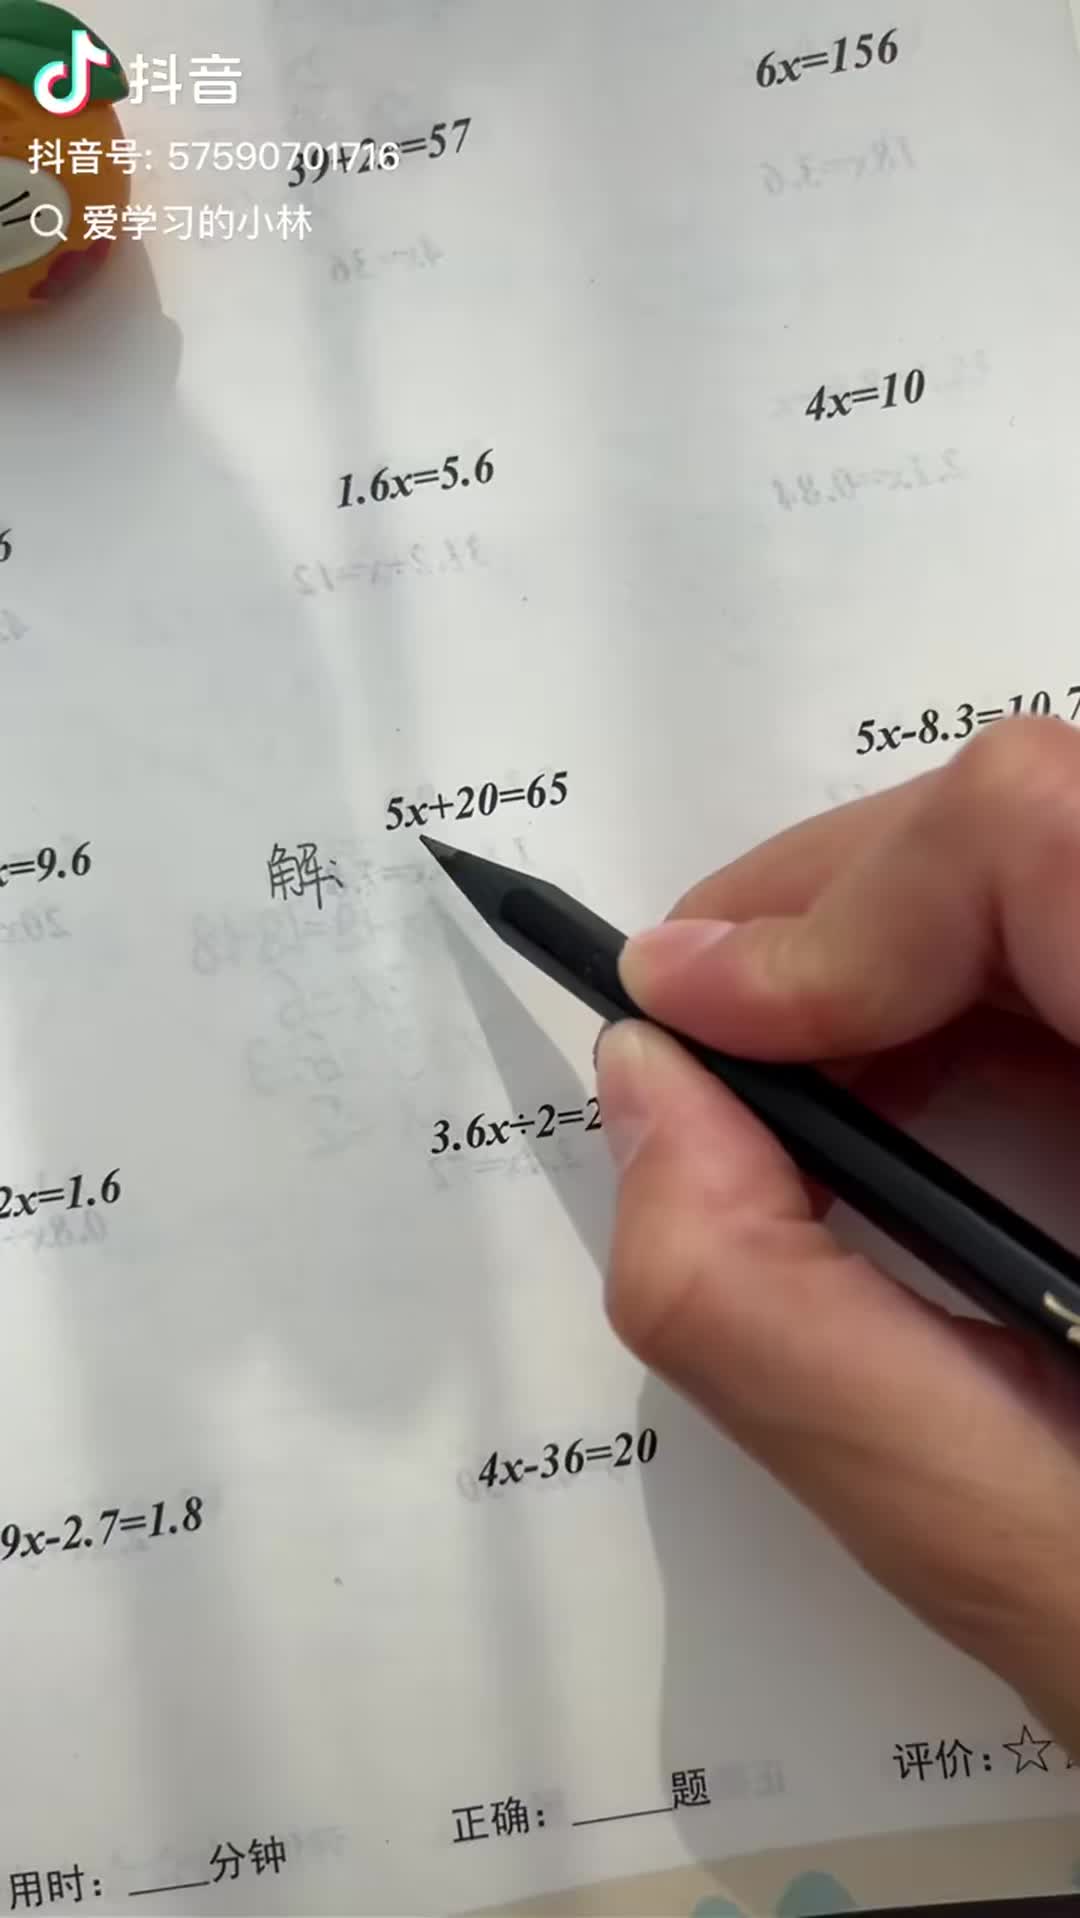 抖音
抖音号: 57590701716
爱学习的小林
6x=156
=57
1.6x=5.6
4x=10
6
5x+20=65
5x-8.3=10.7
x=9.6
解:
3.6x÷2=2
2x=1.6
4x-36=20
9x-2.7=1.8
用时：____分钟
正确：_____题
评价：☆